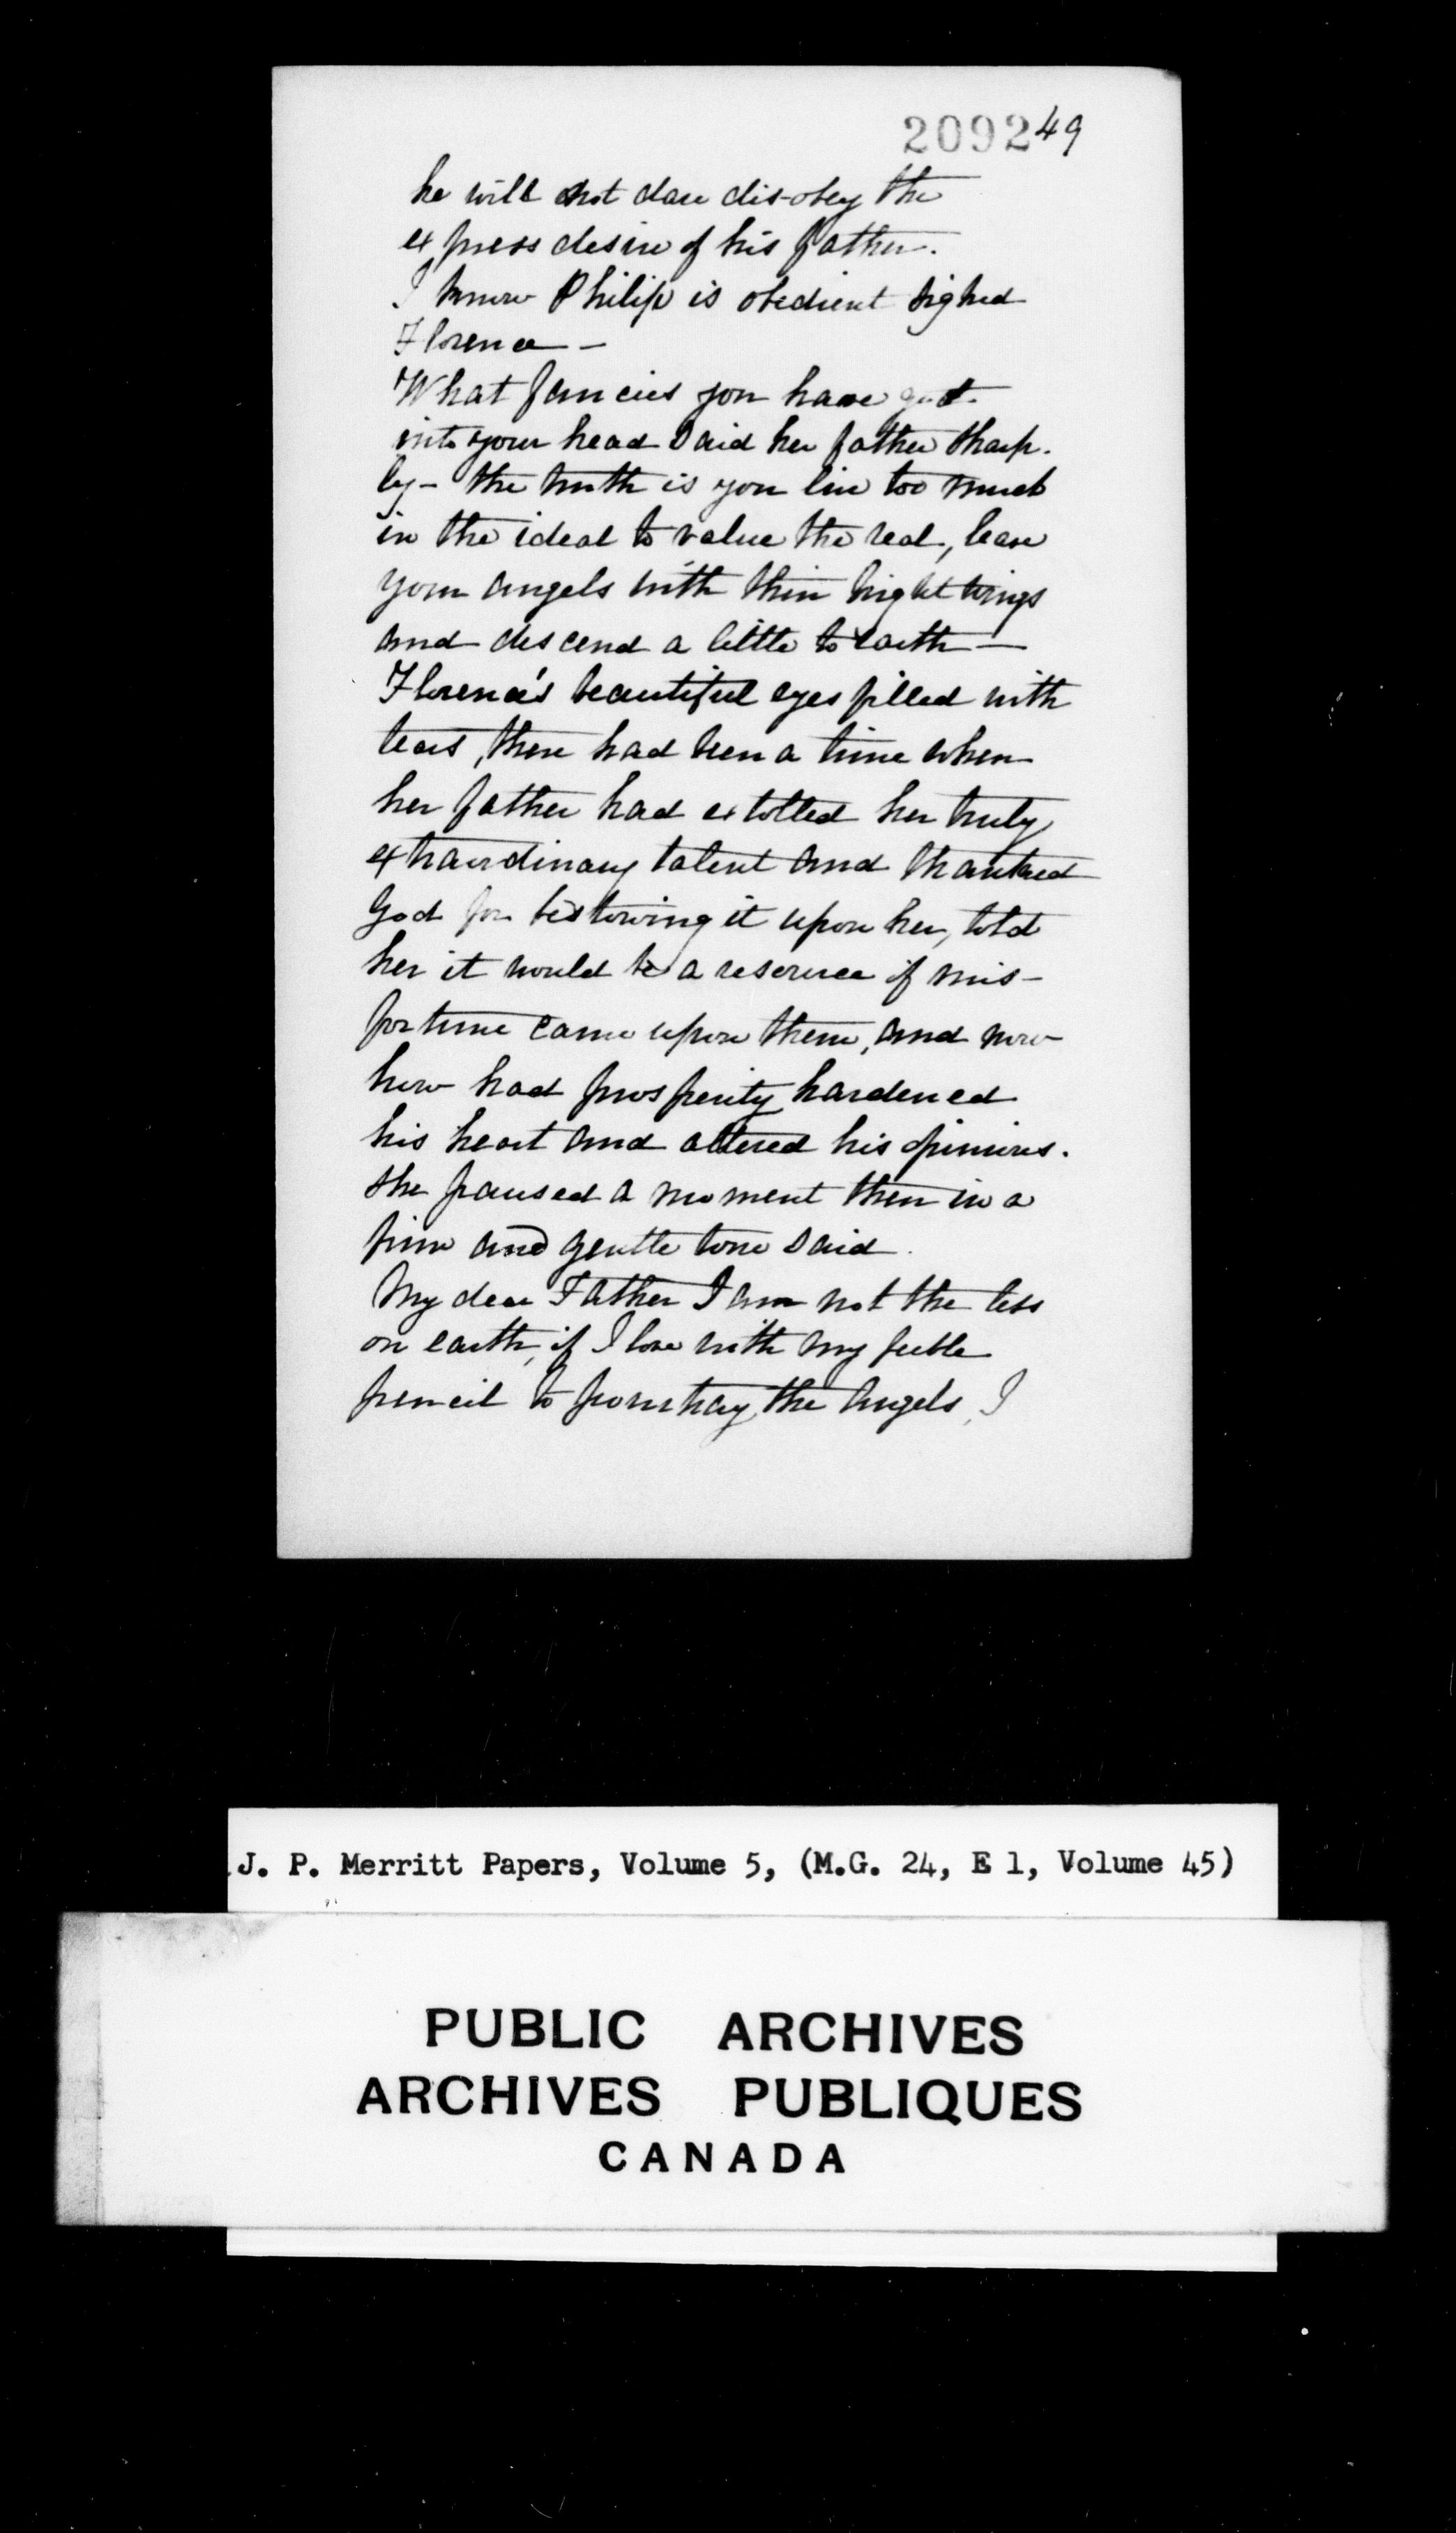 209249
he will not dare dis-obey the
express desire of his father.
I know Philip is obedient sighed
Florence —
What fancies you have got
into your head said her father sharp-
ly - the truth is you live too much
in the ideal to value the real, leave
your angels with their bright wings
and descend a little to earth —
Florence's beautiful eyes filled with
tears, there had been a time when
her father had extolled her truly
extraordinary talent and thanked
God for bestowing it upon her, told
her it would be a resource if mis-
fortune came upon them, and now
how had prosperity hardened
his heart and altered his opinions.
She paused a moment then in a
firm and gentle tone said.
My dear Father I am not the less
on earth, if I love with my feeble
pencil to pourtray the angels, I
J. P. Merritt Papers, Volume 5, (M.G. 24, E 1, Volume 45)
PUBLIC ARCHIVES
ARCHIVES PUBLIQUES
CANADA